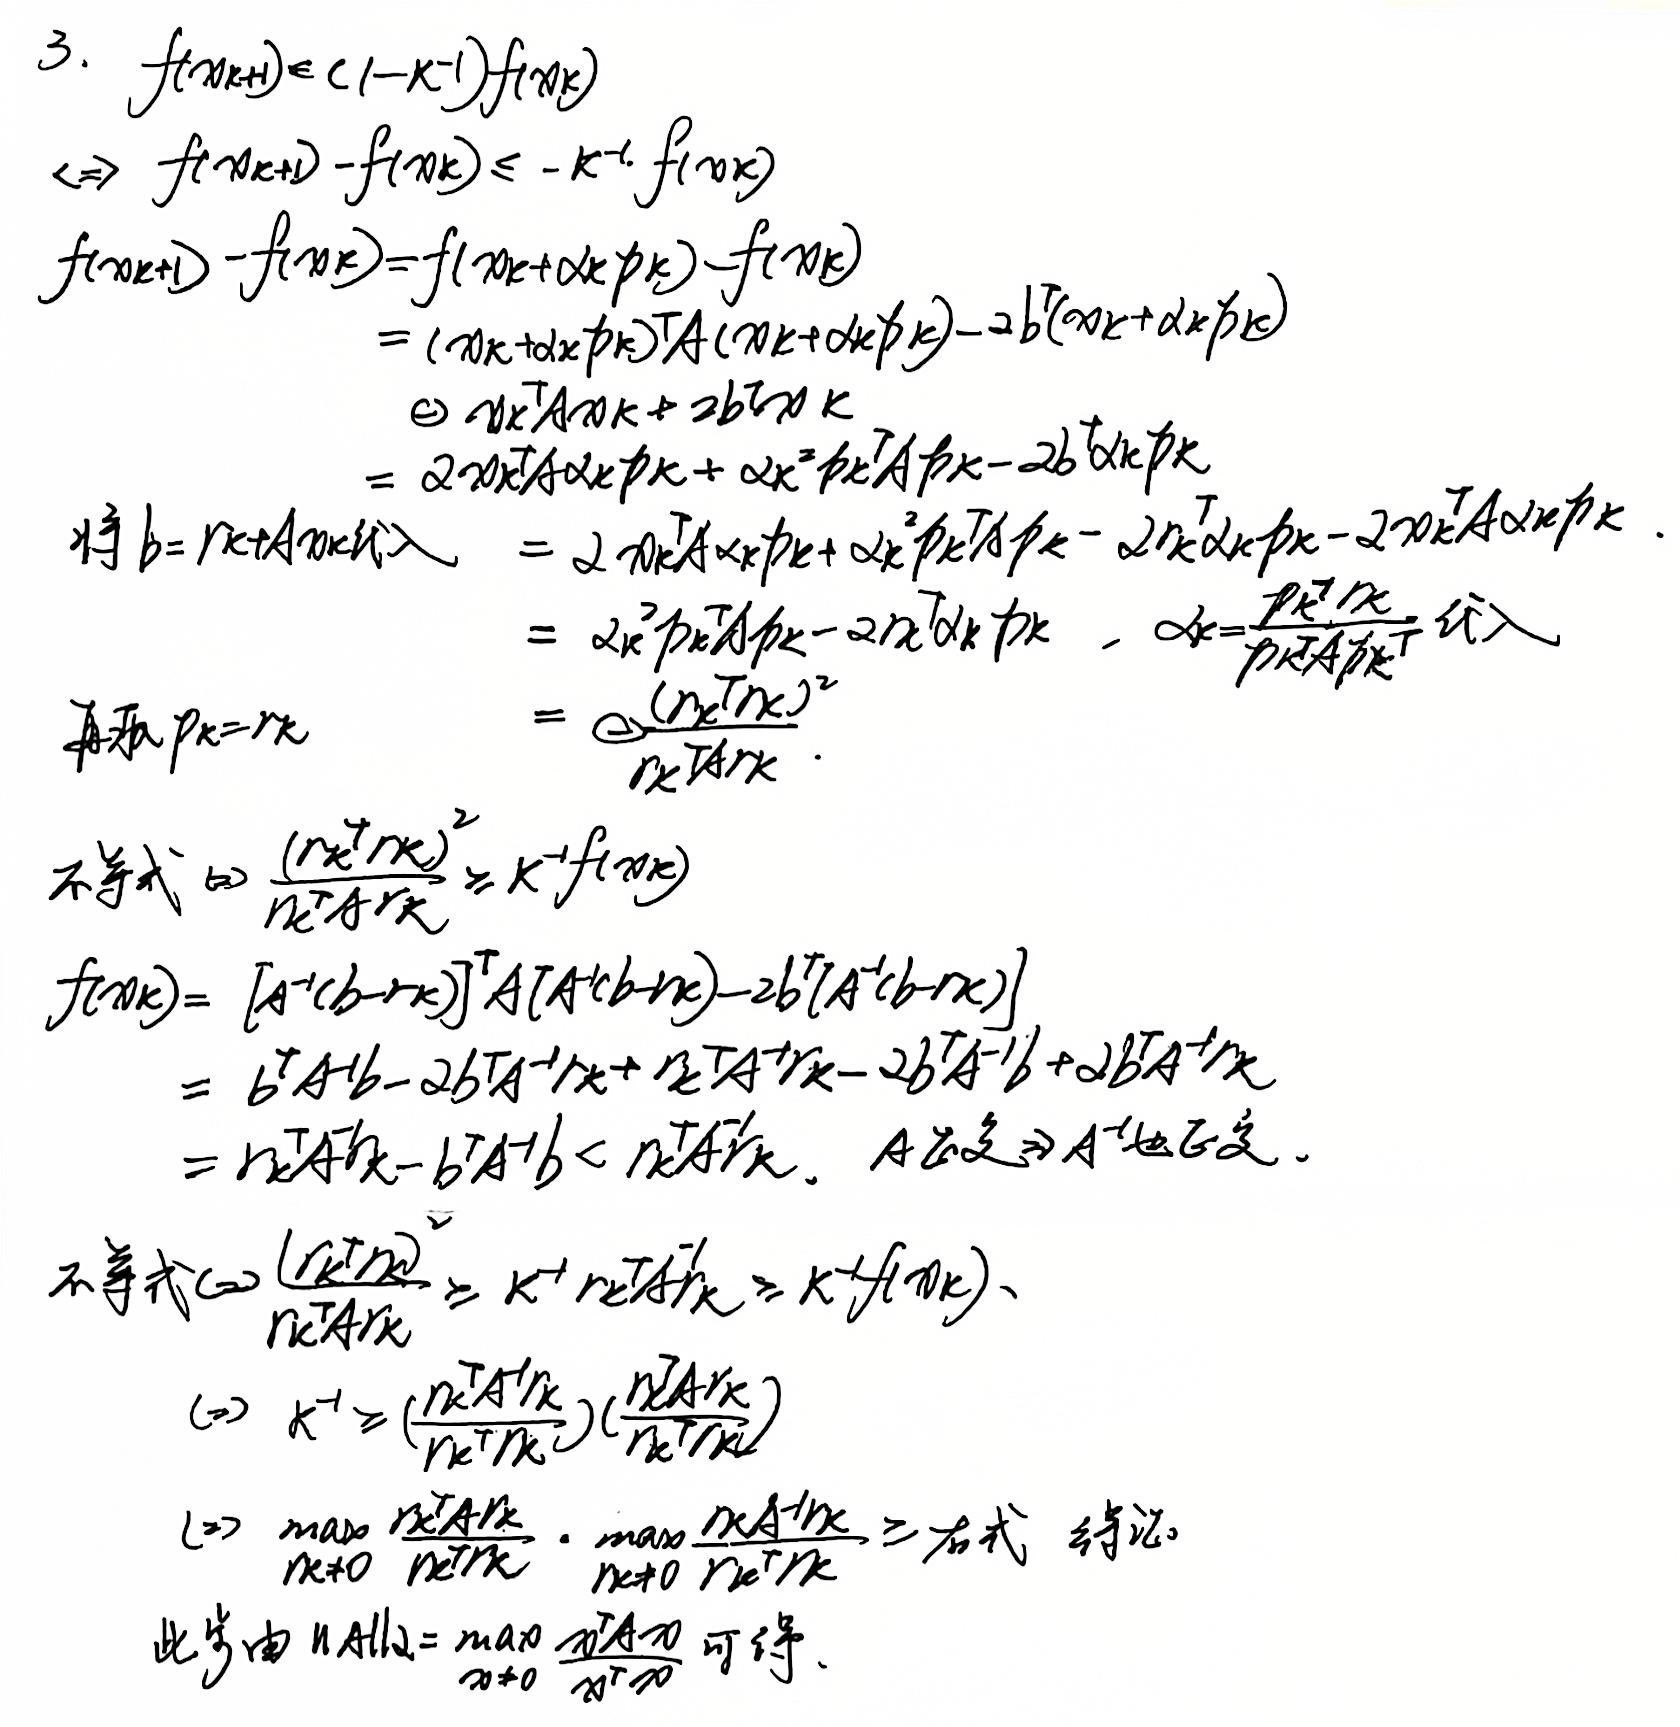 3. f(xk+1) ≤ (1-K⁻¹)f(xk)
<=> f(xk+1) - f(xk) ≤ -K⁻¹· f(xk)
f(xk+1) - f(xk) = f(xk+αkpk) - f(xk)
= (xk+αkpk)ᵀA(xk+αkpk) - 2bᵀ(xk+αkpk)
⊖ xkᵀAxk + 2bᵀxk
= 2xkᵀAαkpk + αk²pkᵀApk - 2bᵀαkpk
将 b=rk+Axk代入 = 2xkᵀAαkpk + αk²pkᵀApk - 2rkᵀαkpk - 2xkᵀAαkpk.
= αk²pkᵀApk - 2rkᵀαkpk , αk = pkᵀrk / pkᵀApkᵀ 代入
再取 pk=rk = ⊖ (rkᵀrk)² / rkᵀArk .
不等式 <=> (rkᵀrk)² / rkᵀArk ≥ K⁻¹f(xk)
f(xk) = [A⁻¹(b-rk)]ᵀA[A⁻¹(b-rk) - 2bᵀ[A⁻¹(b-rk)]
= bᵀA⁻¹b - 2bᵀA⁻¹rk + rkᵀA⁻¹rk - 2bᵀA⁻¹b + 2bᵀA⁻¹rk
= rkᵀA⁻¹rk - bᵀA⁻¹b < rkᵀA⁻¹rk. A正定 => A⁻¹也正定.
不等式 <=> (rkᵀrk)² / rkᵀArk ≥ K⁻¹rkᵀA⁻¹rk ≥ K⁻¹f(xk).
<=> K⁻¹ ≥ (rkᵀA⁻¹rk / rkᵀrk)(rkᵀArk / rkᵀrk)
<=> max rk≠0 rkᵀArk / rkᵀrk · max rk≠0 rkA⁻¹rk / rkᵀrk ≥ 右式 得证。
此步由 ||A||₂ = max x≠0 xᵀAx / xᵀx 可得.